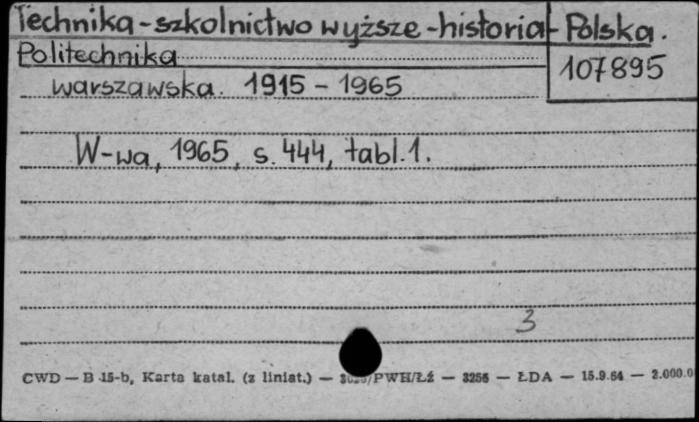 Technika-szkolnictwo wyższe-historia-Polska.
Politechnika
107895
warszawska. 1915 - 1965
W-wa, 1965, s. 444, tabl.1.
3
CWD — B 15-b, Karta katal. (z liniat.) — /PWH/ŁŹ — 3256 — ŁDA — 15.9.64 — 2.000.0